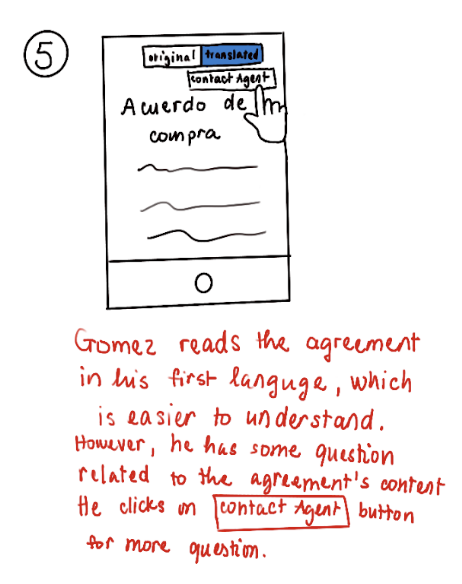 5
original translated
contact Agent
Acuerdo de
compra
Gomez reads the agreement
in his first languge, which
is easier to understand.
However, he has some question
related to the agreement's content
He clicks on contact Agent button
for more question.